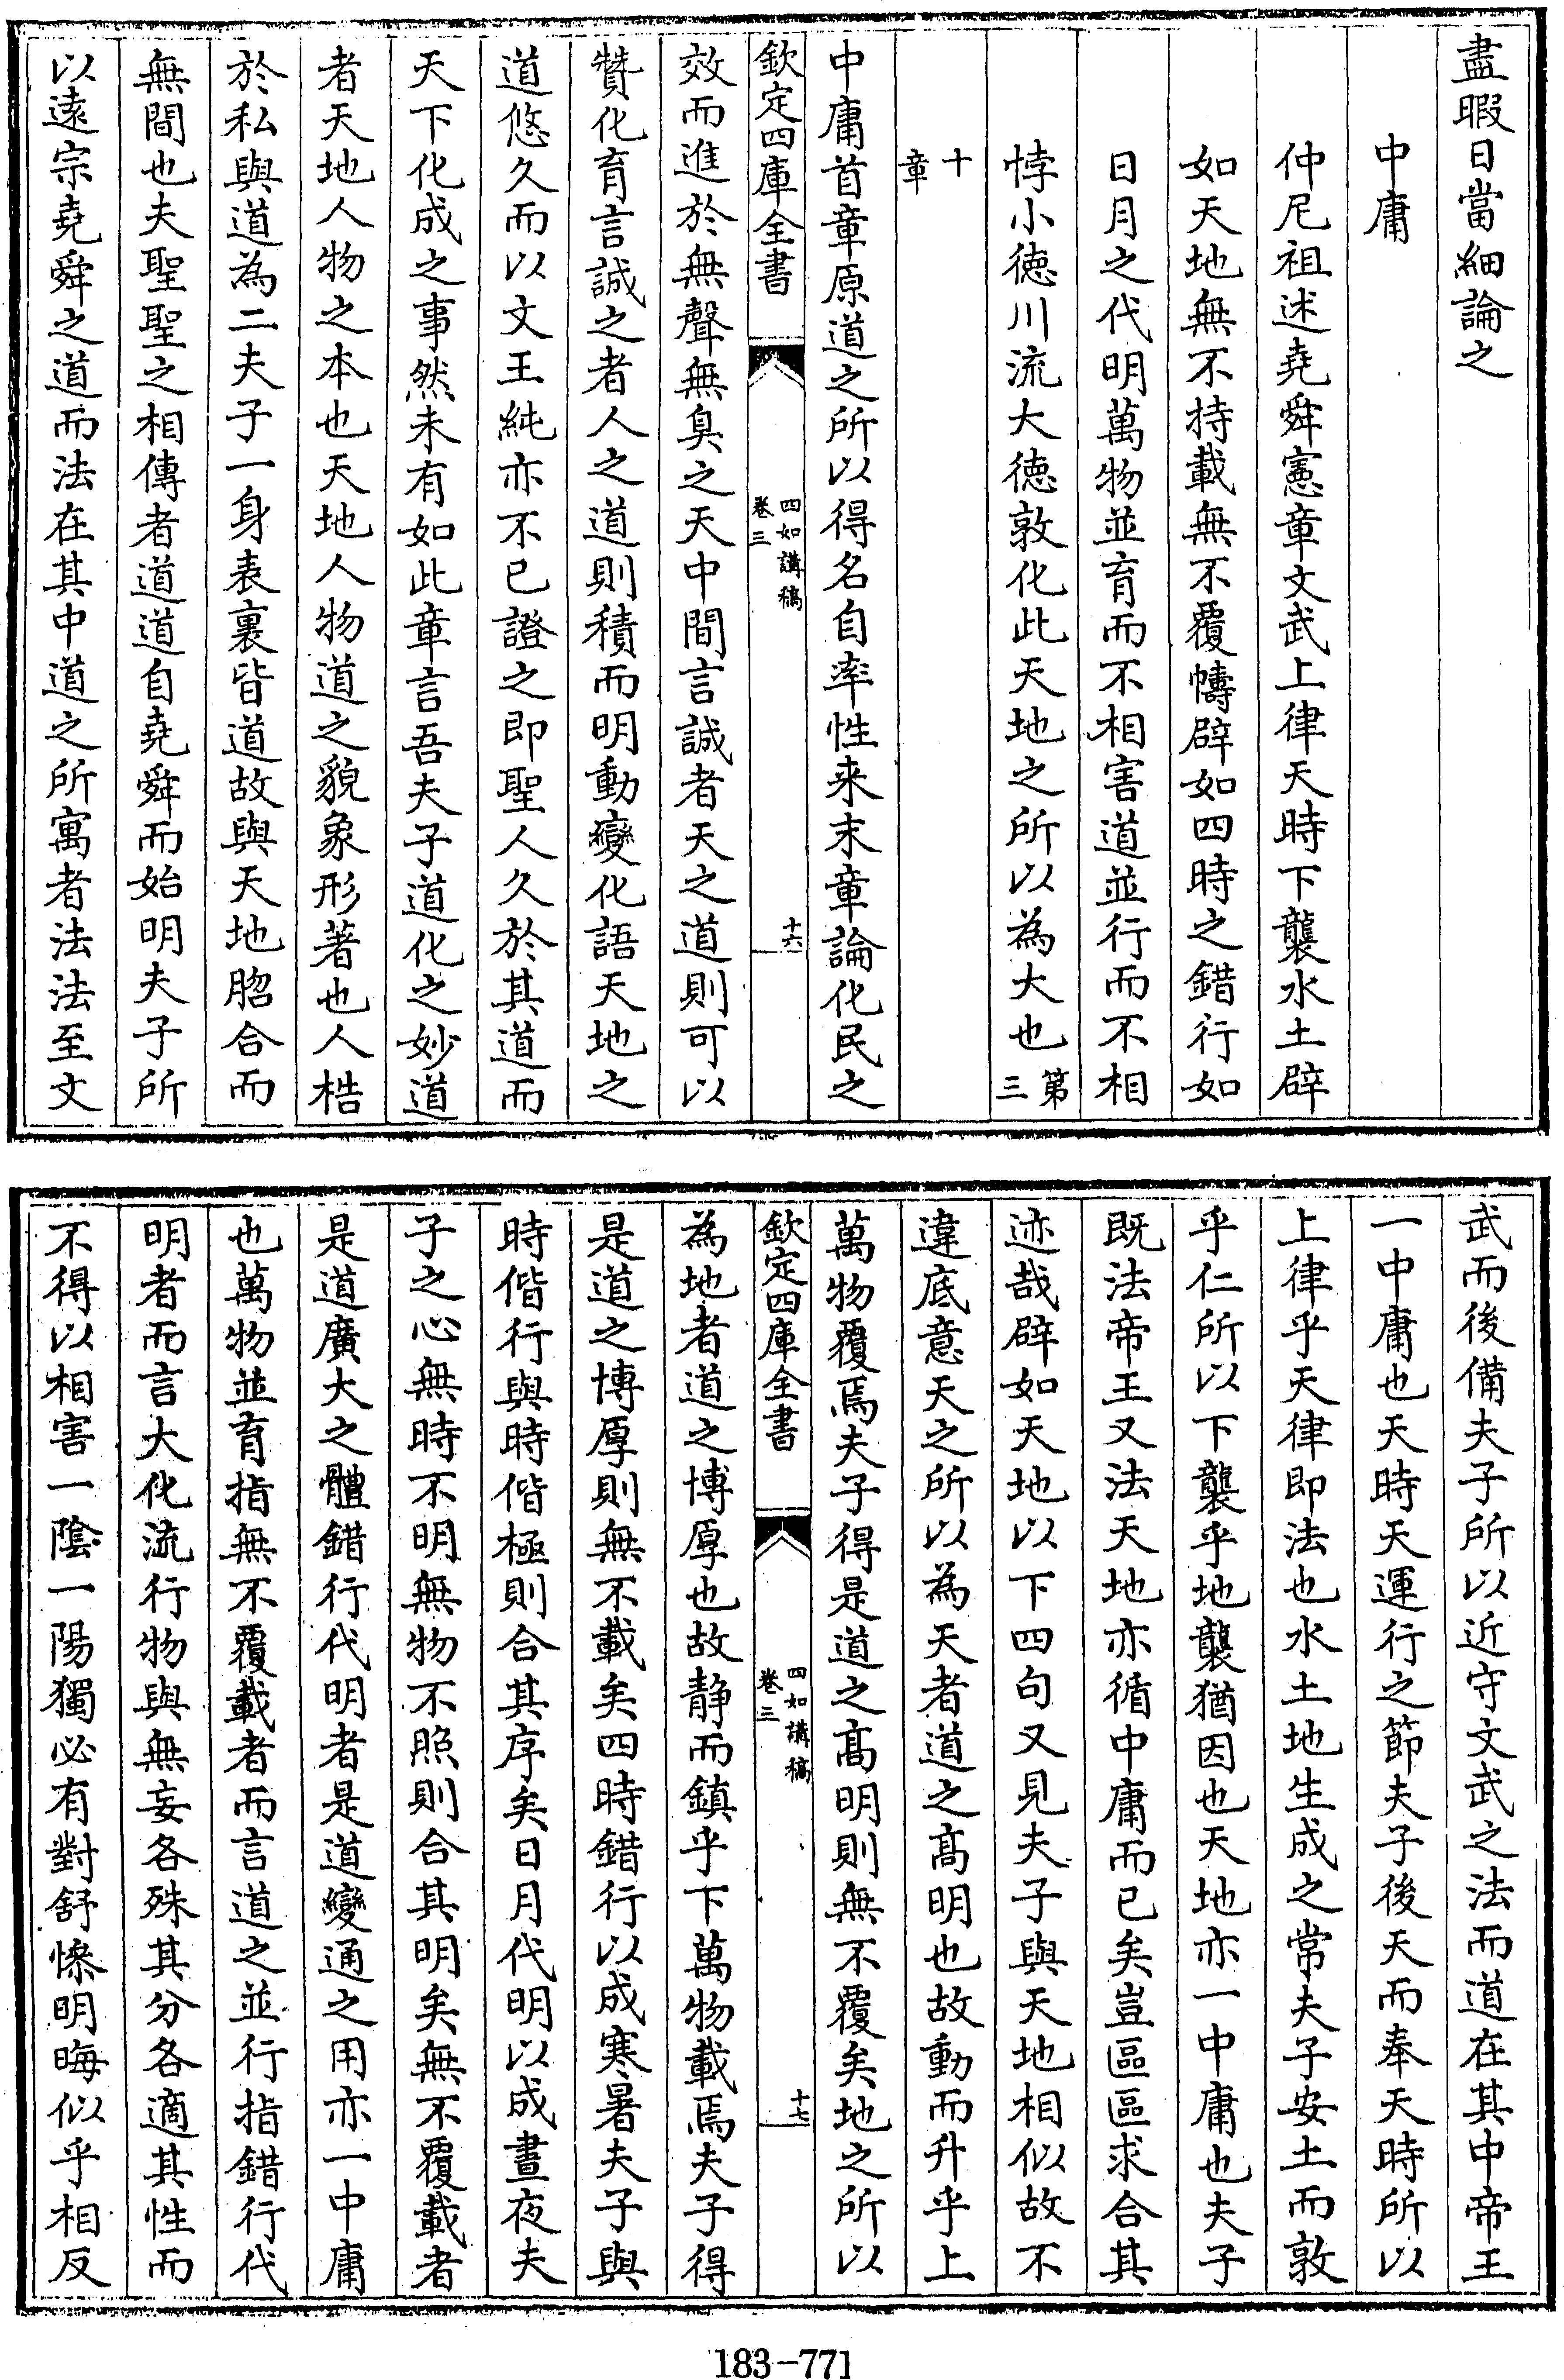 盡暇日當細論之
中庸
仲尼祖述堯舜憲章文武上律天時下襲水土辟
如天地無不持載無不覆幬辟如四時之錯行如
日月之代明萬物並育而不相害道並行而不相
悖小徳川流大徳敦化此天地之所以為大也第三
十章
中庸首章原道之所以得名自率性来末章論化民之
欽定四庫全書
四如講稿
卷三
十六
效而進於無聲無臭之天中間言誠者天之道則可以
贊化育言誠之者人之道則積而明動變化語天地之
道悠久而以文王純亦不已證之即聖人久於其道而
天下化成之事然未有如此章言吾夫子道化之妙道
者天地人物之本也天地人物道之貌象形著也人梏
於私與道為二夫子一身表裏皆道故與天地脗合而
無間也夫聖聖之相傳者道道自堯舜而始明夫子所
以遠宗堯舜之道而法在其中道之所寓者法法至文
武而後備夫子所以近守文武之法而道在其中帝王
一中庸也天時天運行之節夫子後天而奉天時所以
上律乎天律即法也水土地生成之常夫子安土而敦
乎仁所以下襲乎地襲猶因也天地亦一中庸也夫子
既法帝王又法天地亦循中庸而已矣豈區區求合其
迹哉辟如天地以下四句又見夫子與天地相似故不
違底意天之所以為天者道之髙明也故動而升乎上
萬物覆焉夫子得是道之髙明則無不覆矣地之所以
欽定四庫全書
四如講稿
卷三
十七
為地者道之博厚也故静而鎮乎下萬物載焉夫子得
是道之博厚則無不載矣四時錯行以成寒暑夫子與
時偕行與時偕極則合其序矣日月代明以成晝夜夫
子之心無時不明無物不照則合其明矣無不覆載者
是道廣大之體錯行代明者是道變通之用亦一中庸
也萬物並育指無不覆載者而言道之並行指錯行代
明者而言大化流行物與無妄各殊其分各適其性而
不得以相害一隂一陽獨必有對舒慘明晦似乎相反
183-771